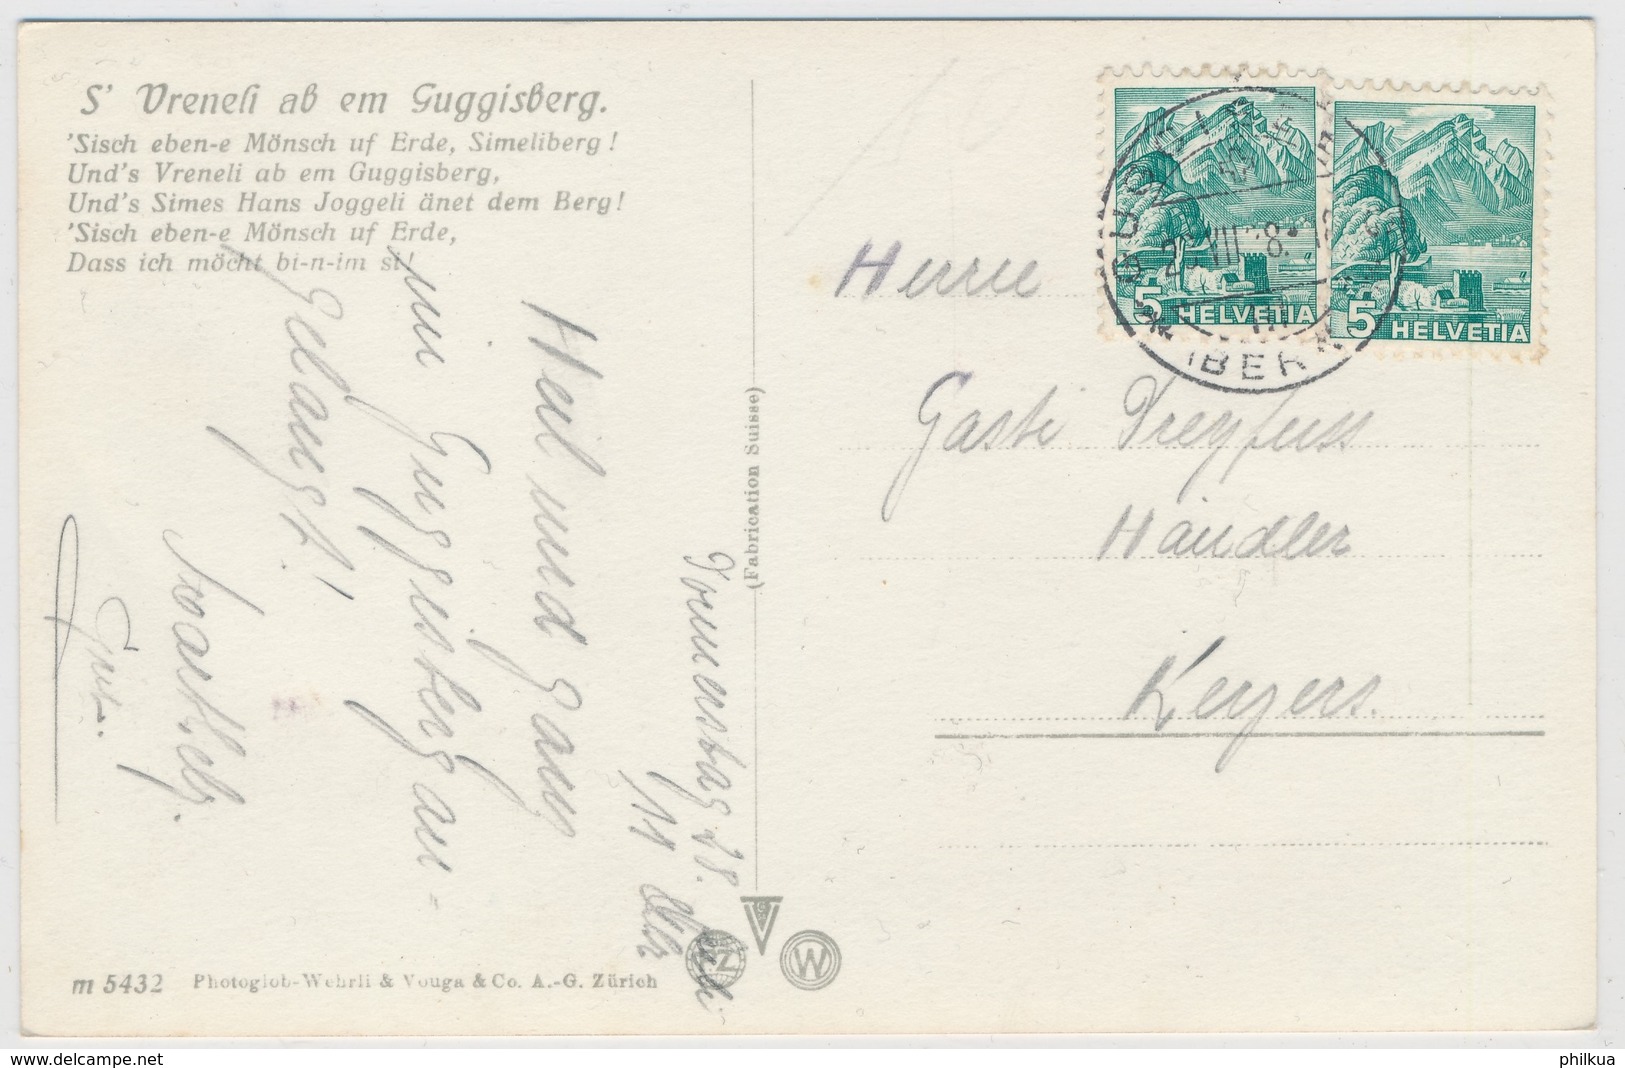 S' Vreneli ab em Guggisberg.
'Sisch eben-e Mönsch uf Erde, Simeliberg!
Und's Vreneli ab em Guggisberg,
Und's Simes Hans Joggeli änet dem Berg!
'Sisch eben-e Mönsch uf Erde,
Dass ich möcht bi-n-im si!
Donnerstag 28.
11 Uhr
Heil und ganz
in Guggisberg an=
gelangt!
Gruss.
(Fabrication Suisse)
5 HELVETIA
5 HELVETIA
BERN
Gasti Dreyfuss
Händler
Kerzers.
Z
W
m 5432 Photoglob-Wehrli & Vouga & Co. A.-G. Zürich
philkua